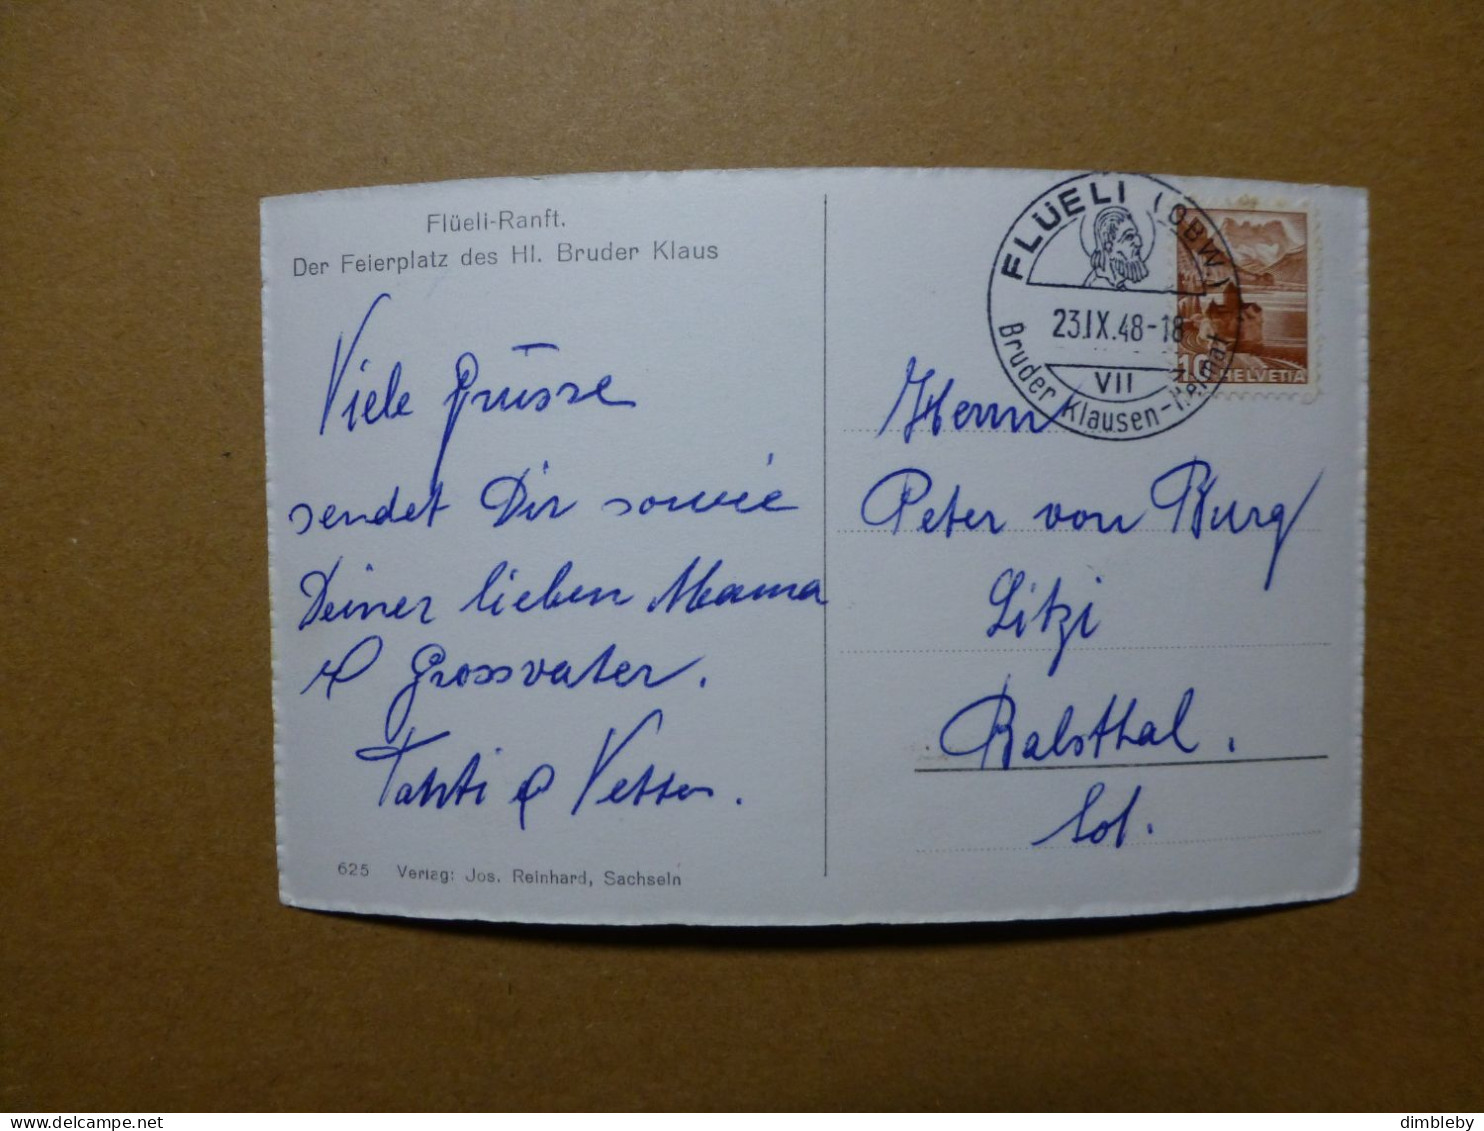 Flüeli-Ranft.
Der Feierplatz des Hl. Bruder Klaus
Viele Grüsse
sendet Dir sowie
Deiner lieben Mama
& Grossvater.
Tanti & Vetter.
625 Verlag: Jos. Reinhard, Sachseln
FLÜELI (OBW.)
23.IX.48-18
VII
Bruder Klausen-Heimat
10 HELVETIA
Herrn
Peter von Burg
Litzi
Balsthal.
Sol.
www.delcampe.net
dimbleby